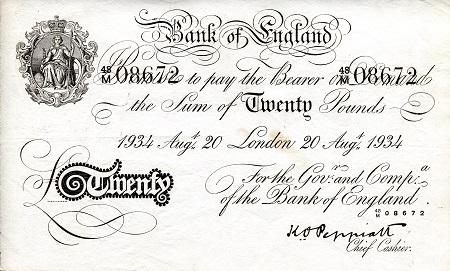 Bank of England
48/M 08672 48/M 08672
Promise to pay the Bearer on Demand
the Sum of Twenty Pounds
1934 Augt. 20 London 20 Augt. 1934
For the Govr. and Compa.
£Twenty of the Bank of England.
48/M 08672
K.O. Peppiatt
Chief Cashier.